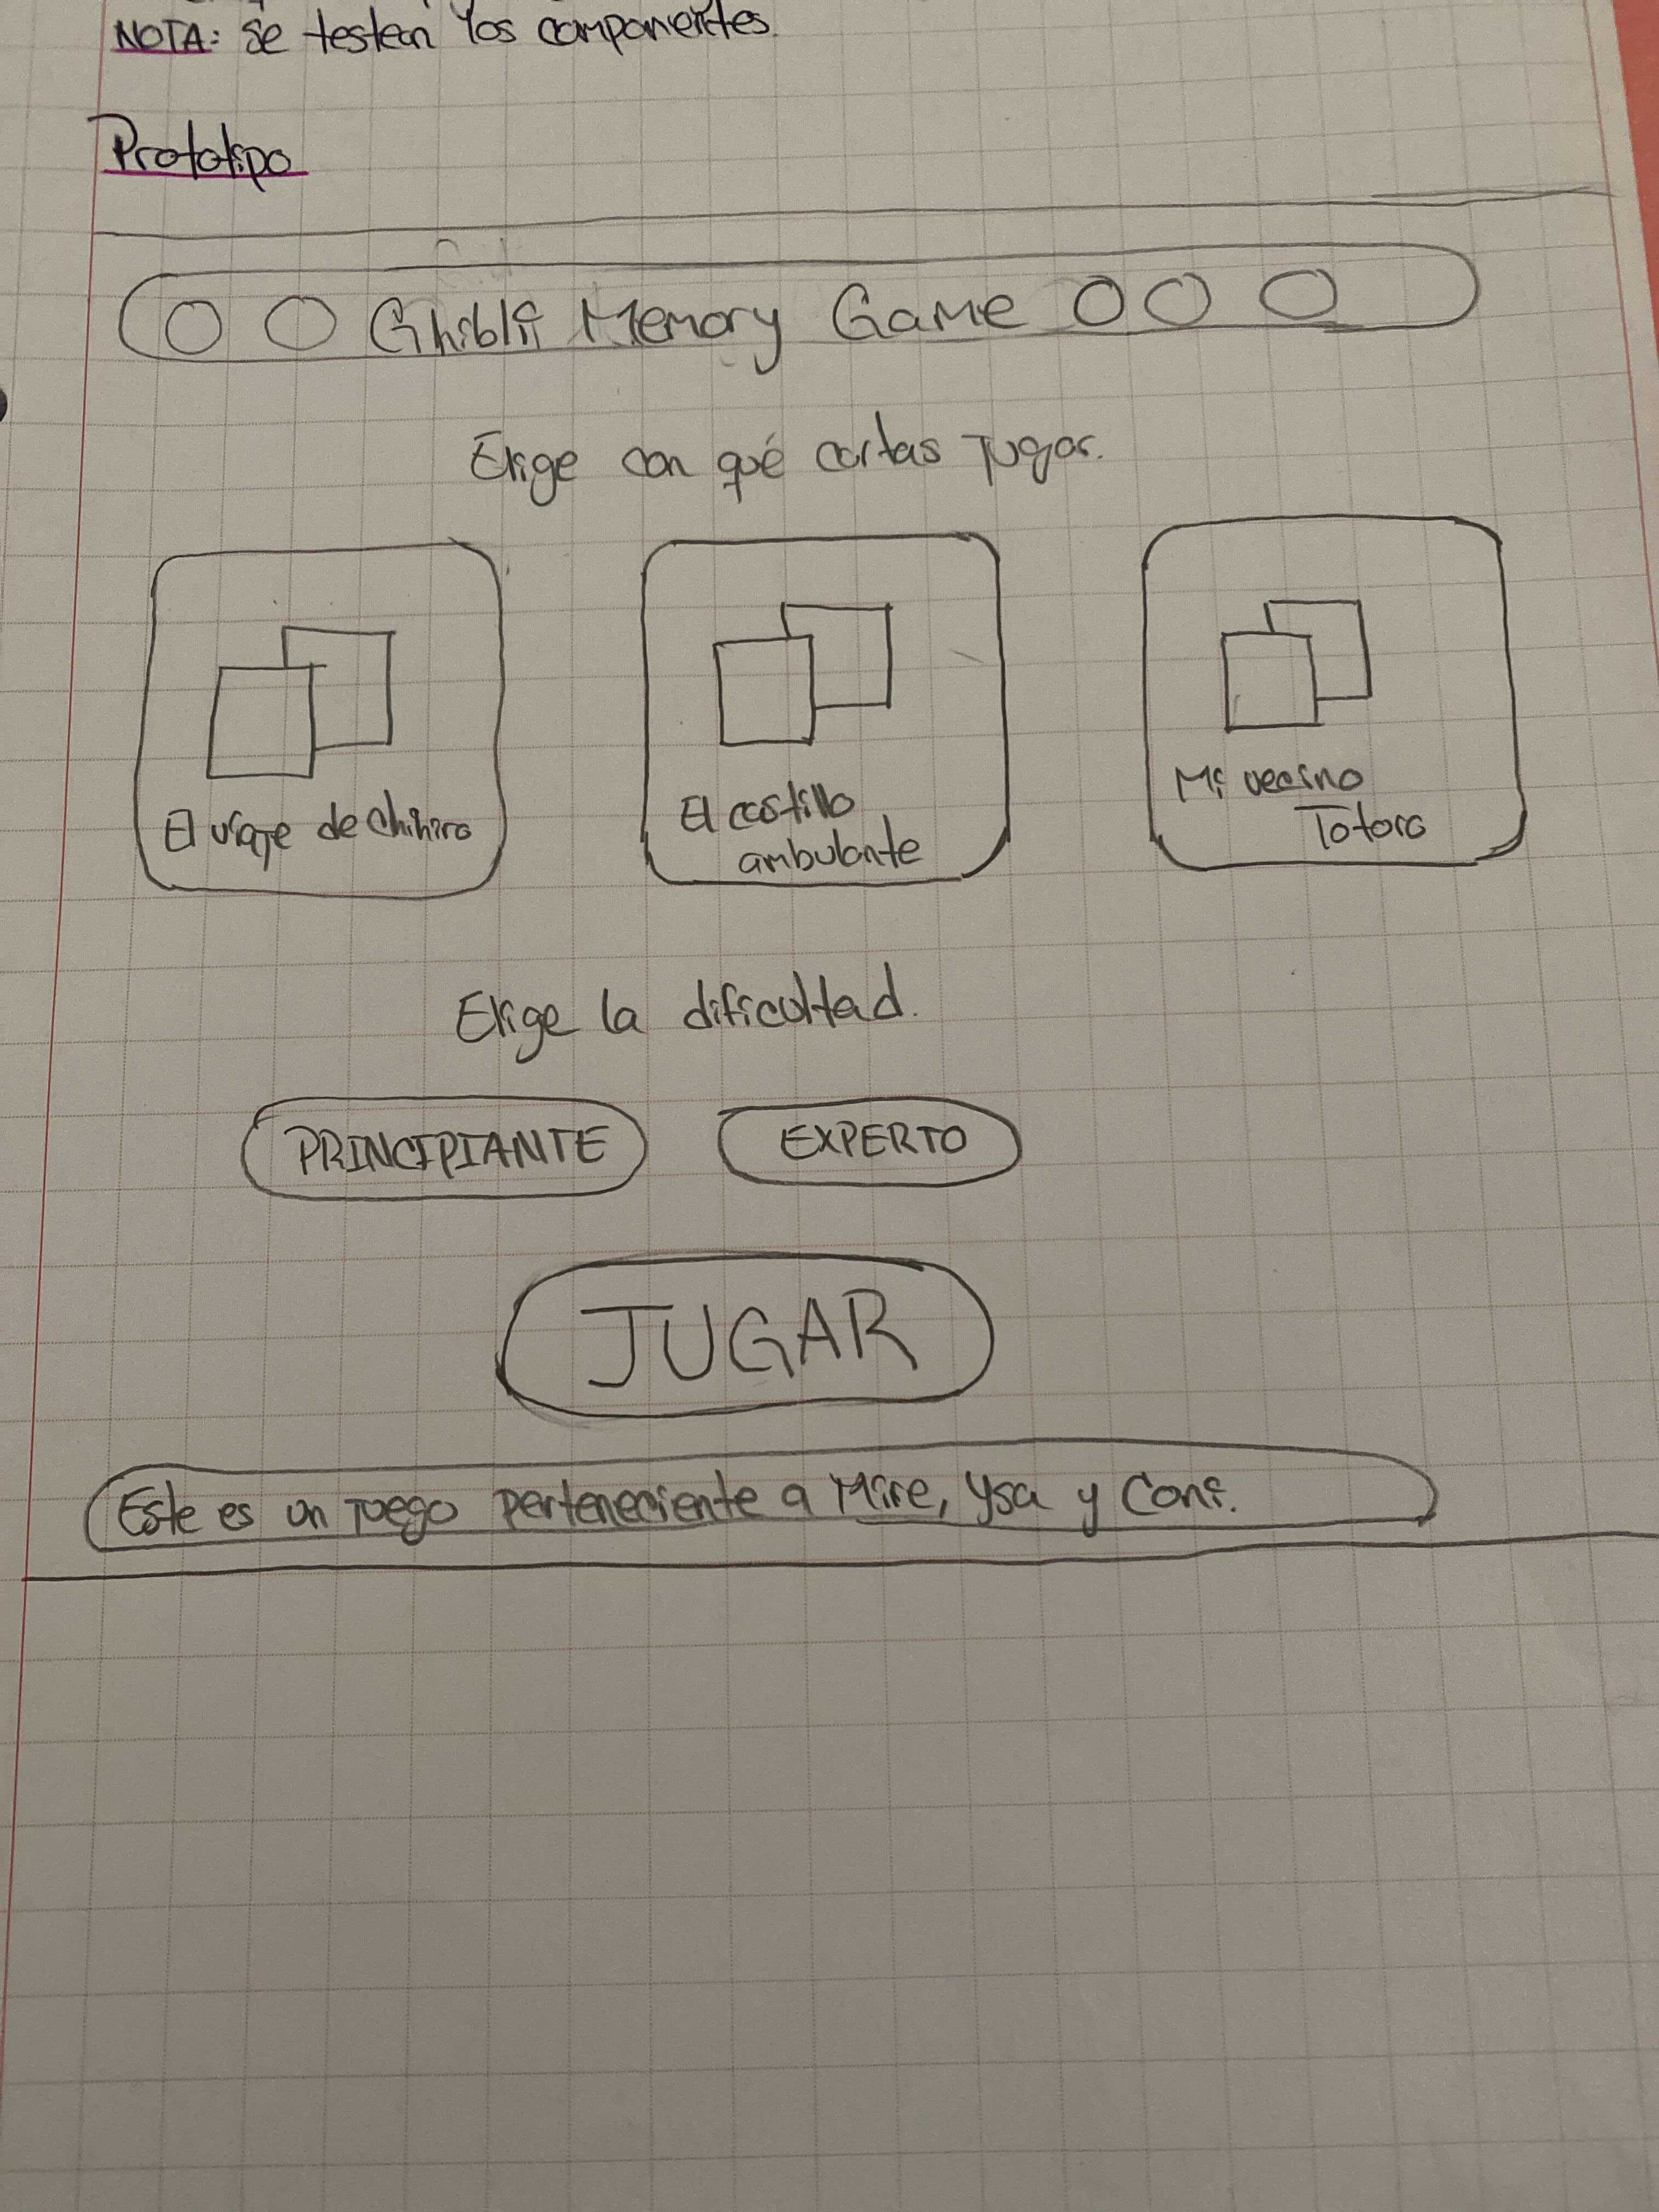 NOTA: Se testean los componentes.
Prototipo
Ghibli Memory Game
Elige con qué cartas jugar.
El viaje de Chihiro
El castillo
ambulante
Mi vecino
Totoro
Elige la dificultad.
PRINCIPIANTE
EXPERTO
JUGAR
Este es un juego perteneciente a Mire, Ysa y Coni.